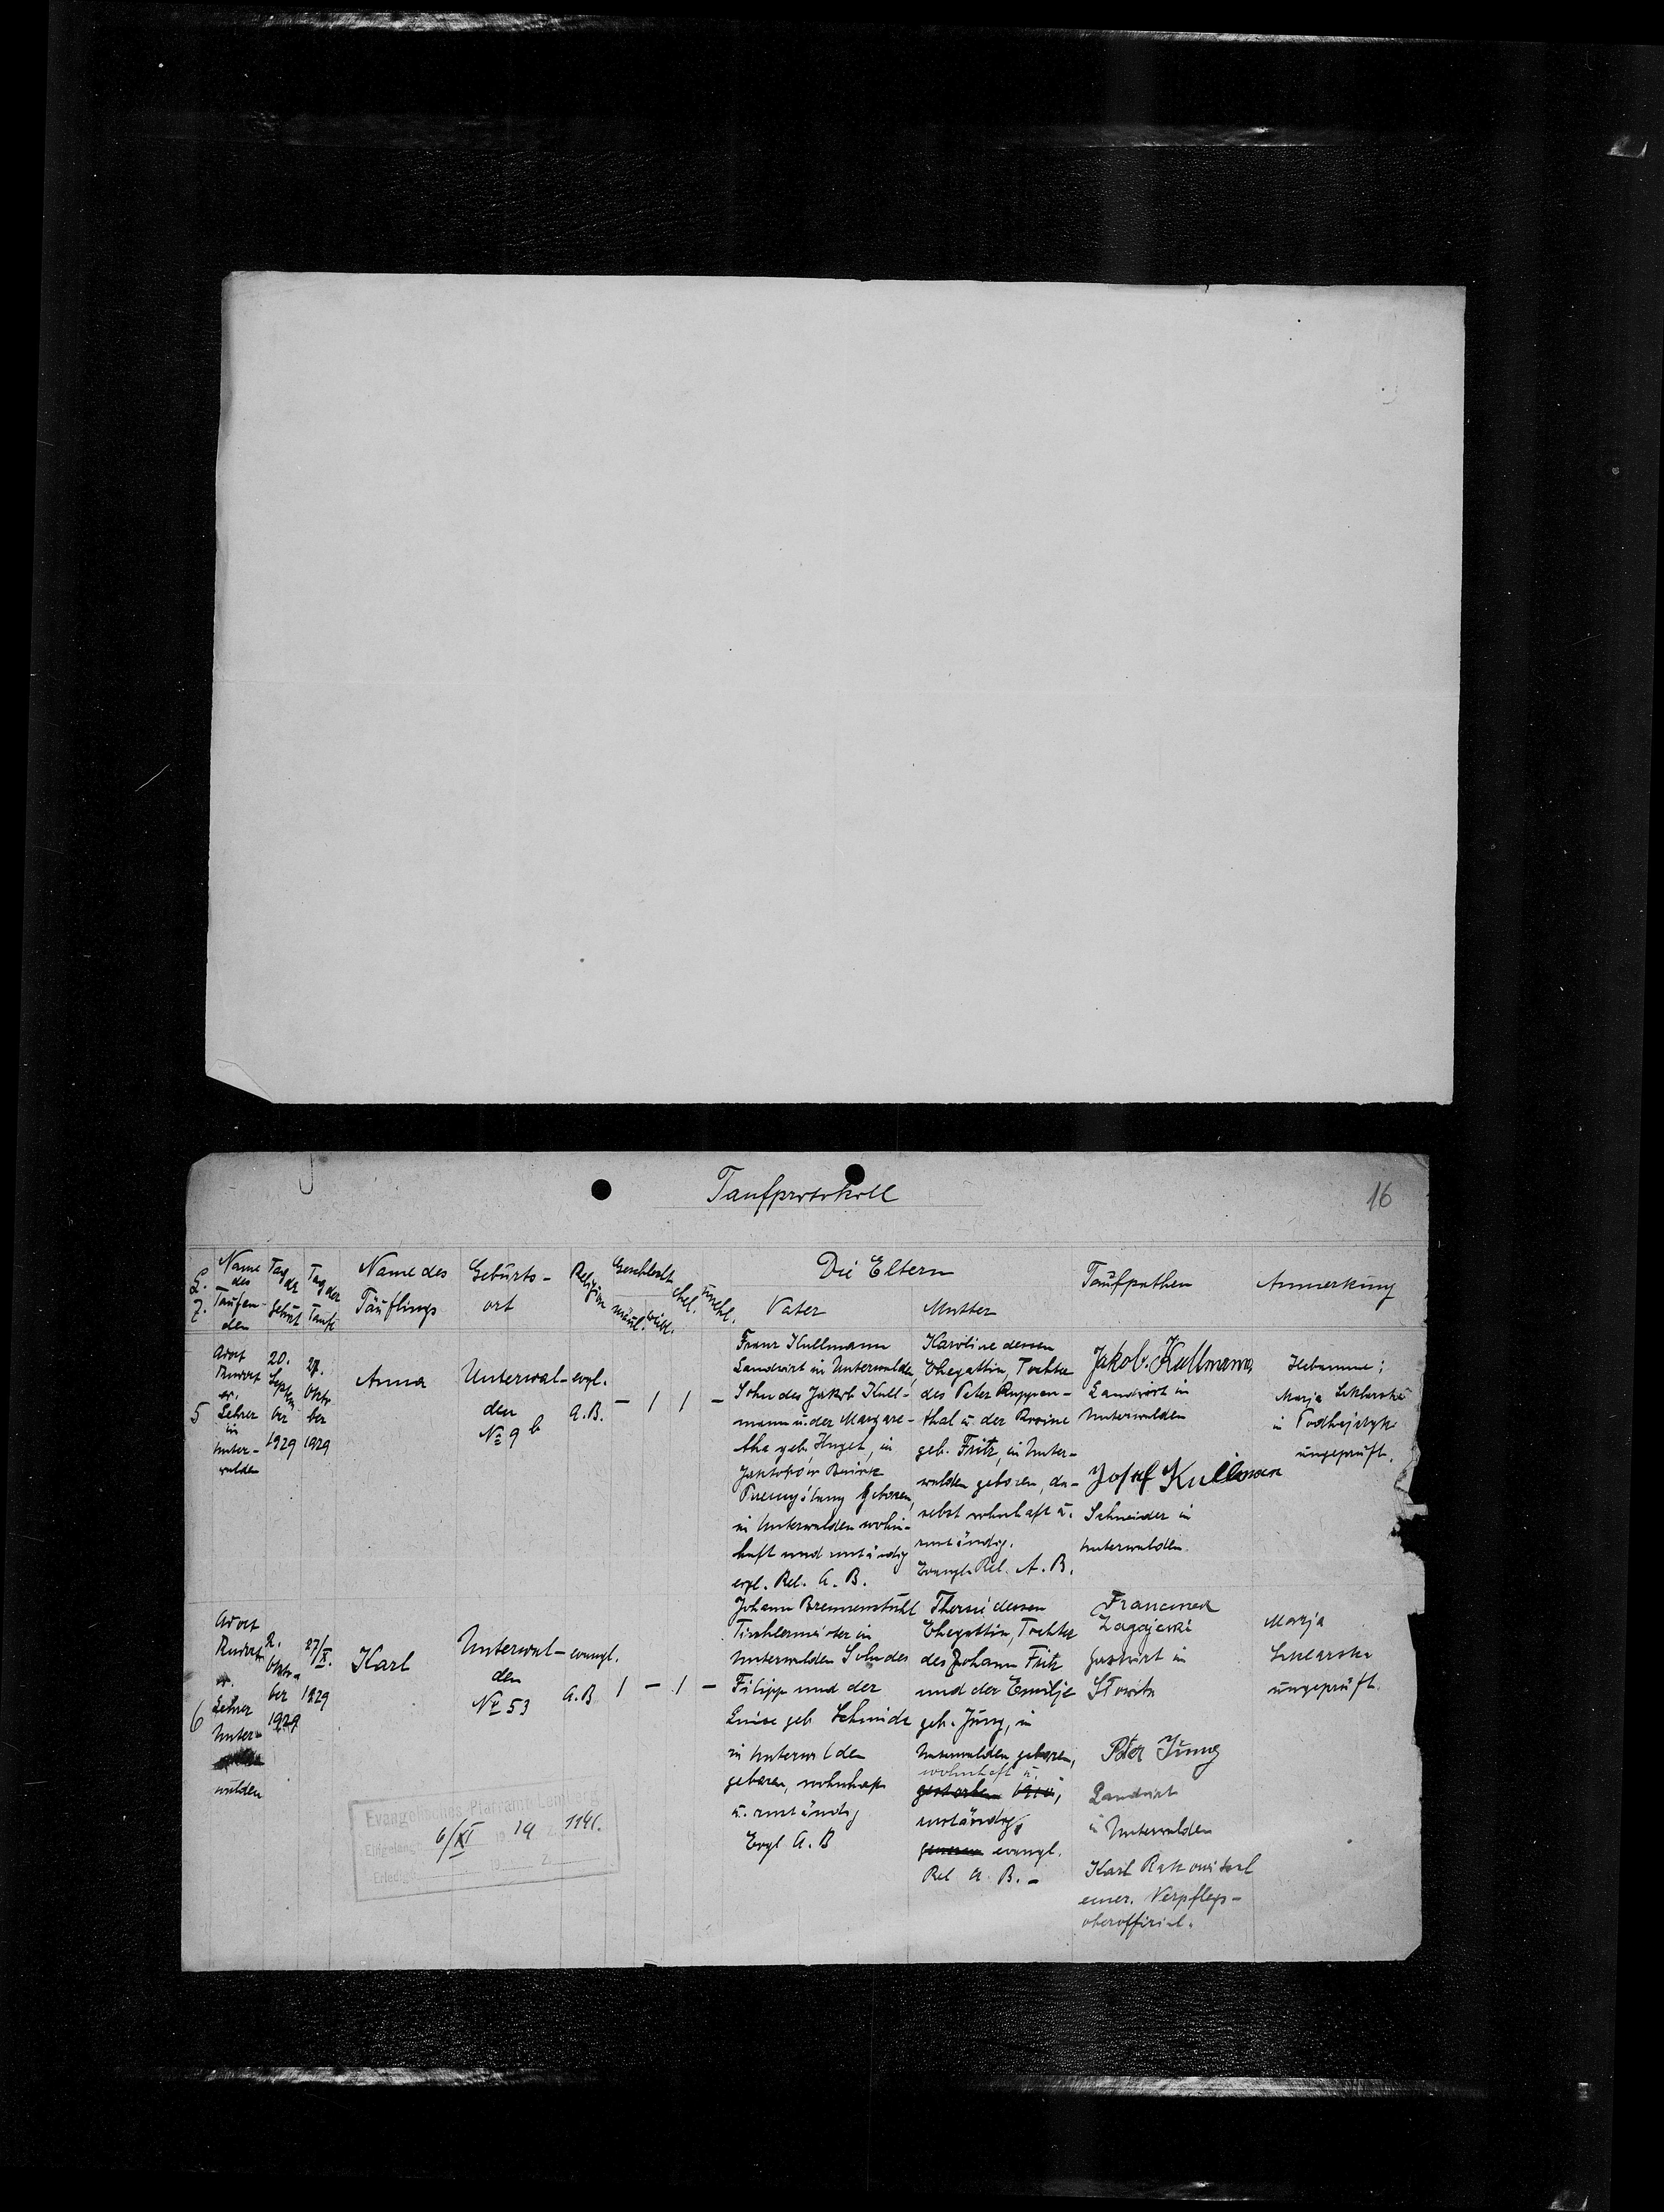 Taufprotokoll
16
L. Z.
Name des Taufenden
Tag der Geburt
Tag der Taufe
Name des Täuflings
Geburts-ort
Religion
Geschlecht
männl.
weibl.
ehel.
unehl.
Die Eltern
Vater
Mutter
Taufpathen
Anmerkung
5
ev.
Lehrer
in
Unter-
walden
20.
Septem
ber
1929
27.
Okto
ber
1929
Anna
Unterwal-
den
№ 9 b
evgl.
A.B.
–
1
1
–
Franz Kullmann
Landwirt in Unterwalden,
Sohn des Jakob Kull-
mann u. der Margare-
tha geb. in
geboren,
in Unterwalden wohn-
haft und zuständig
evgl. Rel. A. B.
Karoline dessen
Ehegattin, Tochter
des Peter Ruppen-
thal u. der
geb. Fritz, in Unter-
walden geboren, da-
selbst wohnhaft u.
zuständig.
Evangl. Rel. A. B.
Jakob Kullmann
Landwirt in
Unterwalden
Josef Kullmann
Schneider in
Unterwalden.
Hebamme:
Marja
in
ungeprüft.
6
ev.
Lehrer
Unter-
walden
2.
Okto-
ber
1929
27/X.
1929
Karl
Unterwal-
den
№ 53
evangl.
A.B
1
–
1
–
Johann Brennenstuhl
Tischlermeister in
Unterwalden Sohn des
Filipp und der
Luise geb. Schmidt
in Unterwalden
geboren, wohnhaft
u. zuständig
Evgl A.B
dessen
Ehegattin, Tochter
des Johann Fritz
und der Emilje
geb. Jung, in
Unterwalden geboren,
wohnhaft u.
zuständig,
evangl.
Rel A. B. –
Zagajewski
Gastwirt in
Peter Jung
Landwirt
in Unterwalden
Karl
emer. Verpflegs-
oberoffizial.
Marja
ungeprüft.
Evangelisches Pfarramt Lemberg
Eingelangt 6/XI 19
Erledigt 19 Z.